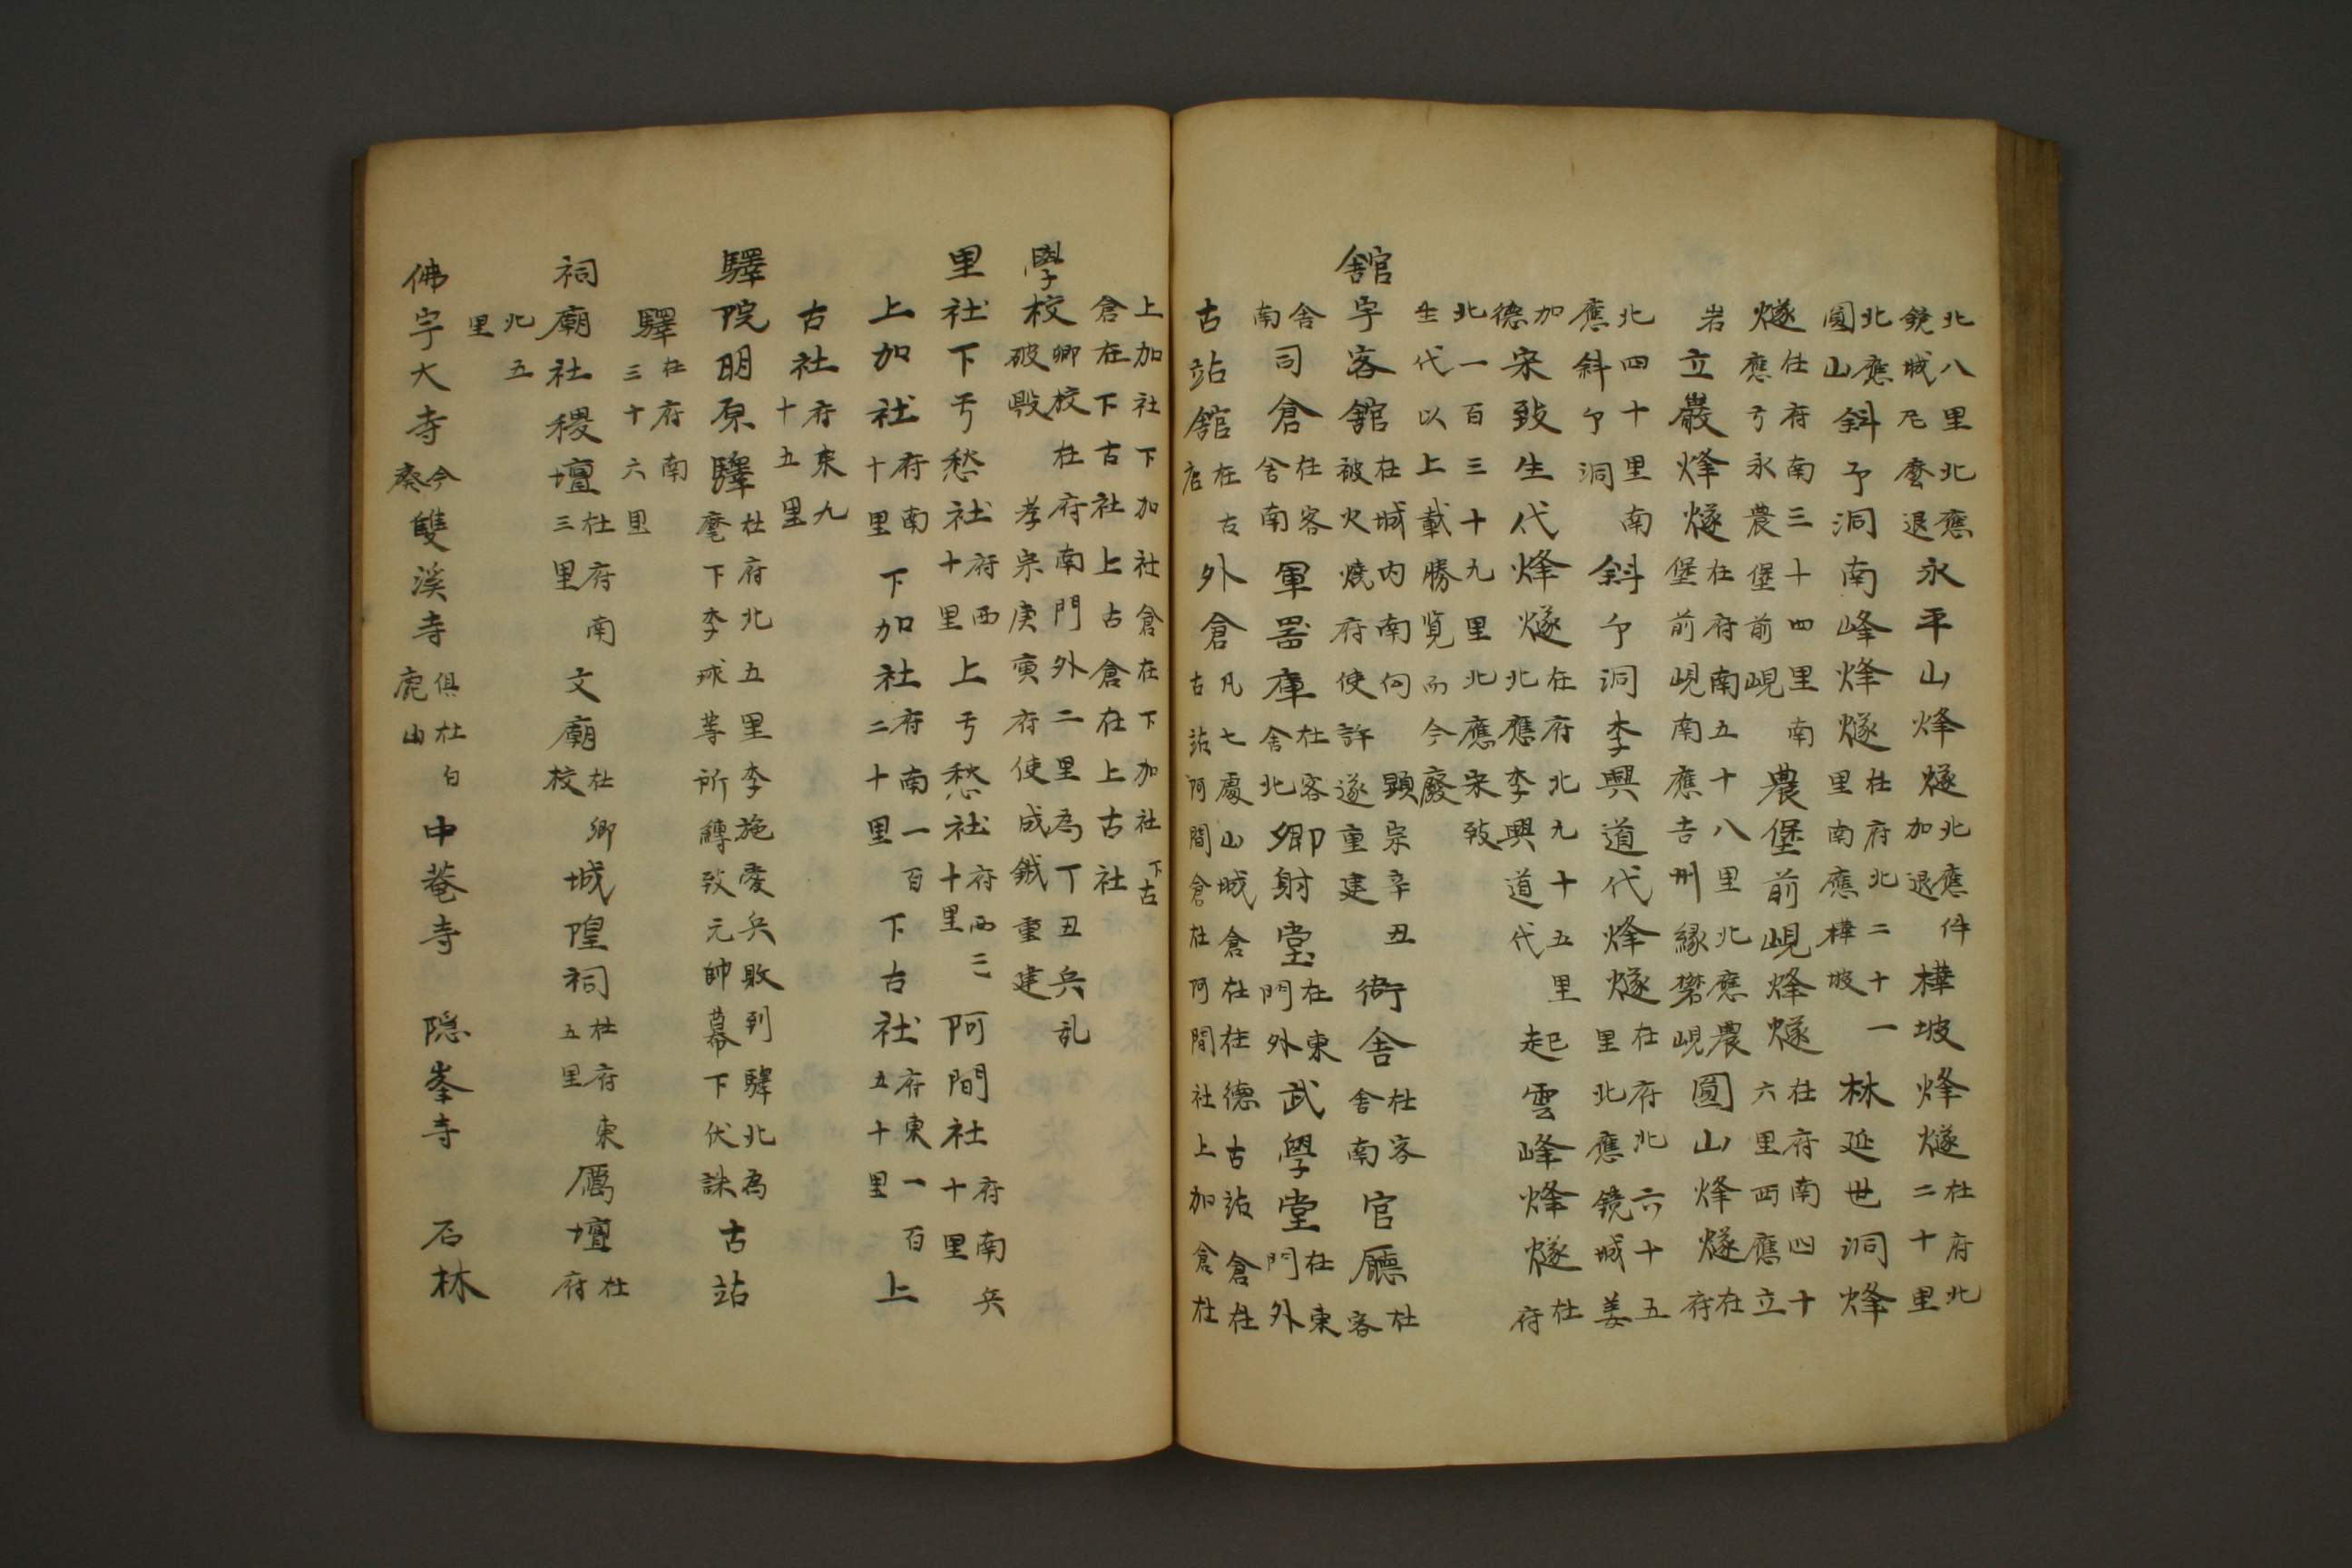 北八里北應鏡城尼麽退永平山烽燧北應件加退樺坡烽燧在府北二十里
北應圓山斜亇洞南峰烽燧在府北二十一里南應樺坡林延世洞烽
燧在府南三十四里南應亐永農堡前峴農堡前峴烽燧在府南四十六里西應立
岩立巖烽燧在府南五十八里北應農堡前峴南應吉州緣礬峴圓山烽燧在府
北四十里南應斜亇洞斜亇洞李興道代烽燧在府北六十五里北應鏡城姜
加德宋致生代烽燧在府北九十五里北應李興道代起雲峰烽燧在府
北一百三十九里北應宋致生代以上載勝覽而今廢
館宇客館在城内南向顯宗辛丑被火燒府使許遂重建衙舍在客舍南官廳在客
舍南司倉在客舍南軍器庫在客舍北鄕射堂在東門外武學堂在東門外
古站館在古店外倉凡七處山城倉在在德古站倉在古站阿間倉在阿間社上加倉在
上加社下加社倉在下加社下古倉在下古社上古倉在上古社
學校鄕校在府南門外二里為丁丑兵乱破毁孝宗庚寅府使成鉞重建
里社下亐愁社府西十里上亐愁社府西二十里阿間社府南兵十里
上加社府南十里下加社府南一百二十里下古社府東一百五十里上
古社府東九十五里
驛院明原驛在府北五里李施愛兵敗到驛北為麾下李球等所縛致元帥幕下伏誅古站
驛在府南三十六里
祠廟社稷壇在府南三里文廟在鄕校城隍祠在府東五里厲壇在府
北五里
佛宇大寺今廢雙溪寺俱在白鹿山中菴寺隱峯寺石林